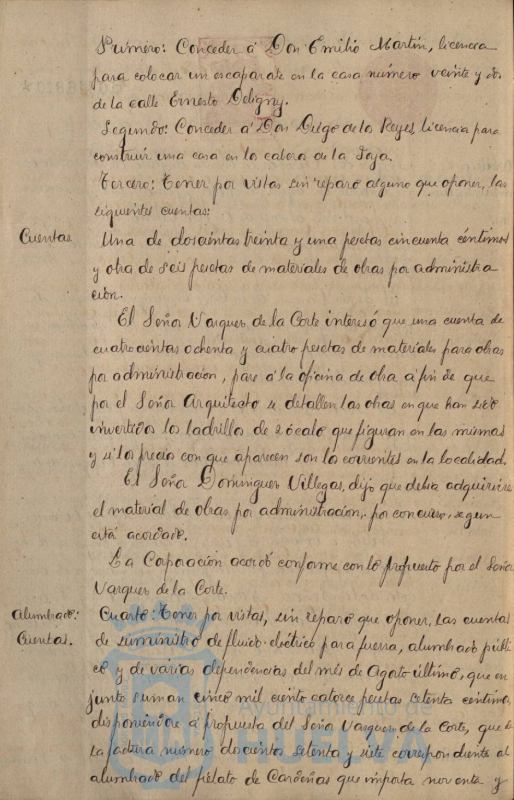 Primero: Conceder á Don Emilio Martin, licencia
para colocar un escaparate en la casa numero veinte y dos
de la calle Ernesto Deligny.
Segundo: Conceder á Don Diego de los Reyes, licencia para
construir una casa en los cabezos de la Joya.
Tercero: Tener por vistas sin reparo alguno que oponer, las
siguientes cuentas:
Cuentas
Una de doscientas treinta y una pesetas cincuenta céntimos
y otra de seis pesetas de materiales de obras por administra
ción.
El Señor Vazquez de la Corte interesó que una cuenta de
cuatrocientas ochenta y cuatro pesetas de materiales para obras
por administracion, pase á la oficina de obra á fin de que
por el Señor Arquitecto se detallen las obras en que han sido
invertidos los ladrillos de zócalo que figuran en las mismas
y si los precios con que aparecen son los corrientes en la localidad.
El Señor Dominguez Villegas, dijo que debia adquirirse
el material de obras por administracion, por concurso, segun
está acordado.
La Corporación acordó conforme con lo propuesto por el Señor
Vazquez de la Corte.
Alumbrado:
Cuentas.
Cuarto: Tener por vistas, sin reparo que oponer, las cuentas
de suministro de fluido electrico para fuerza, alumbrado públi
co y de varias dependencias del més de Agosto último, que en
junto suman cinco mil ciento catorce pesetas setenta centimos,
disponiendose á propuesta del Señor Vazquez de la Corte, que
la factura número doscientos setenta y siete correspondiente al
alumbrado del de Cardeñas que importa noventa y
Ayuntamiento de
HUELVA